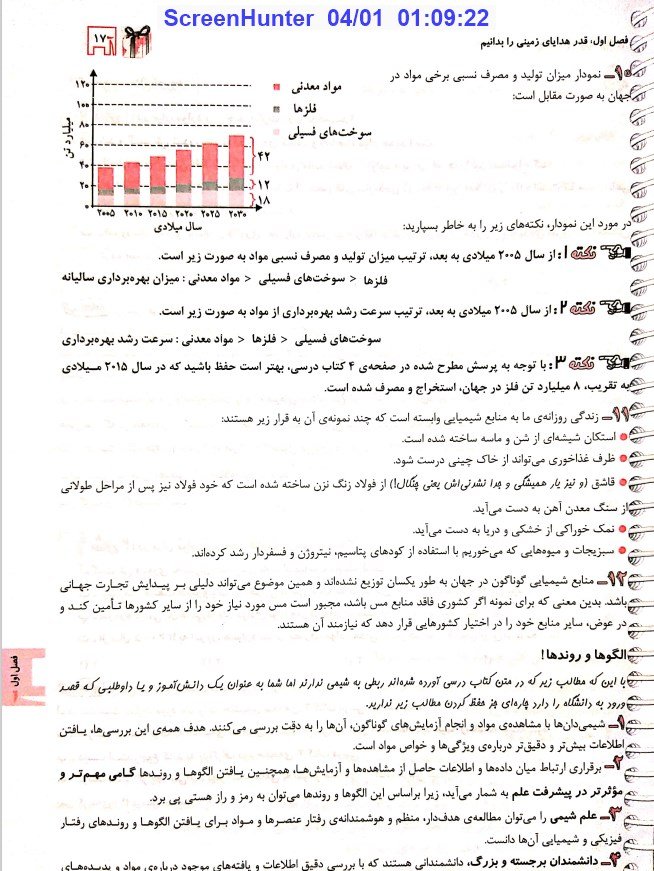 ScreenHunter 04/01 01:09:22
فصل اول، قدر هدایای زمینی را بدانیم
۱۷
۱۰ـ نمودار میزان تولید و مصرف نسبی برخی مواد در
جهان به صورت مقابل است:
مواد معدنی
فلزها
سوخت‌های فسیلی
میلیارد تن
۱۲۰
۱۰۰
۸۰
۶۰
۴۰
۲۰
۰
۴۲
۱۲
۱۸
۲۰۰۵ ۲۰۱۰ ۲۰۱۵ ۲۰۲۰ ۲۰۲۵ ۲۰۳۰
سال میلادی
در مورد این نمودار، نکته‌های زیر را به خاطر بسپارید:
نکته ۱: از سال ۲۰۰۵ میلادی به بعد، ترتیب میزان تولید و مصرف نسبی مواد به صورت زیر است.
فلزها < سوخت‌های فسیلی < مواد معدنی : میزان بهره‌برداری سالیانه
نکته ۲: از سال ۲۰۰۵ میلادی به بعد، ترتیب سرعت رشد بهره‌برداری از مواد به صورت زیر است.
سوخت‌های فسیلی < فلزها < مواد معدنی : سرعت رشد بهره‌برداری
نکته ۳: با توجه به پرسش مطرح شده در صفحه‌ی ۴ کتاب درسی، بهتر است حفظ باشید که در سال ۲۰۱۵ میلادی
به تقریب، ۸ میلیارد تن فلز در جهان، استخراج و مصرف شده است.
۱۱ـ زندگی روزانه‌ی ما به منابع شیمیایی وابسته است که چند نمونه‌ی آن به قرار زیر هستند:
استکان شیشه‌ای از شن و ماسه ساخته شده است.
ظرف غذاخوری می‌تواند از خاک چینی درست شود.
قاشق (و نیز یار همیشگی و جدا نشدنی‌اش یعنی چنگال!) از فولاد زنگ نزن ساخته شده است که خود فولاد نیز پس از مراحل طولانی
از سنگ معدن آهن به دست می‌آید.
نمک خوراکی از خشکی و دریا به دست می‌آید.
سبزیجات و میوه‌هایی که می‌خوریم با استفاده از کودهای پتاسیم، نیتروژن و فسفردار رشد کرده‌اند.
۱۲ـ منابع شیمیایی گوناگون در جهان به طور یکسان توزیع نشده‌اند و همین موضوع می‌تواند دلیلی بر پیدایش تجارت جهانی
باشد. بدین معنی که برای نمونه اگر کشوری فاقد منابع مس باشد، مجبور است مس مورد نیاز خود را از سایر کشورها تأمین کند و
در عوض، سایر منابع خود را در اختیار کشورهایی قرار دهد که نیازمند آن هستند.
الگوها و روندها!
با این که مطالب زیر که در متن کتاب درسی آورده شده‌اند ربطی به شیمی ندارند اما شما به عنوان یک دانش‌آموز و یا داوطلبی که قصد
ورود به دانشگاه را دارد چاره‌ای جز حفظ کردن مطالب زیر ندارید.
۱ـ شیمی‌دان‌ها با مشاهده‌ی مواد و انجام آزمایش‌های گوناگون، آن‌ها را به دقت بررسی می‌کنند. هدف همه‌ی این بررسی‌ها، یافتن
اطلاعات بیش‌تر و دقیق‌تر درباره‌ی ویژگی‌ها و خواص مواد است.
۲ـ برقراری ارتباط میان داده‌ها و اطلاعات حاصل از مشاهده‌ها و آزمایش‌ها، همچنین یافتن الگوها و روندها گامی مهم‌تر و
مؤثرتر در پیشرفت علم به شمار می‌آید، زیرا براساس این الگوها و روندها می‌توان به رمز و راز هستی پی برد.
۳ـ علم شیمی را می‌توان مطالعه‌ی هدف‌دار، منظم و هوشمندانه‌ی رفتار عنصرها و مواد برای یافتن الگوها و روندهای رفتار
فیزیکی و شیمیایی آن‌ها دانست.
۴ـ دانشمندان برجسته و بزرگ، دانشمندانی هستند که با بررسی دقیق اطلاعات و یافته‌های موجود درباره‌ی مواد و پدیده‌های
فصل اول